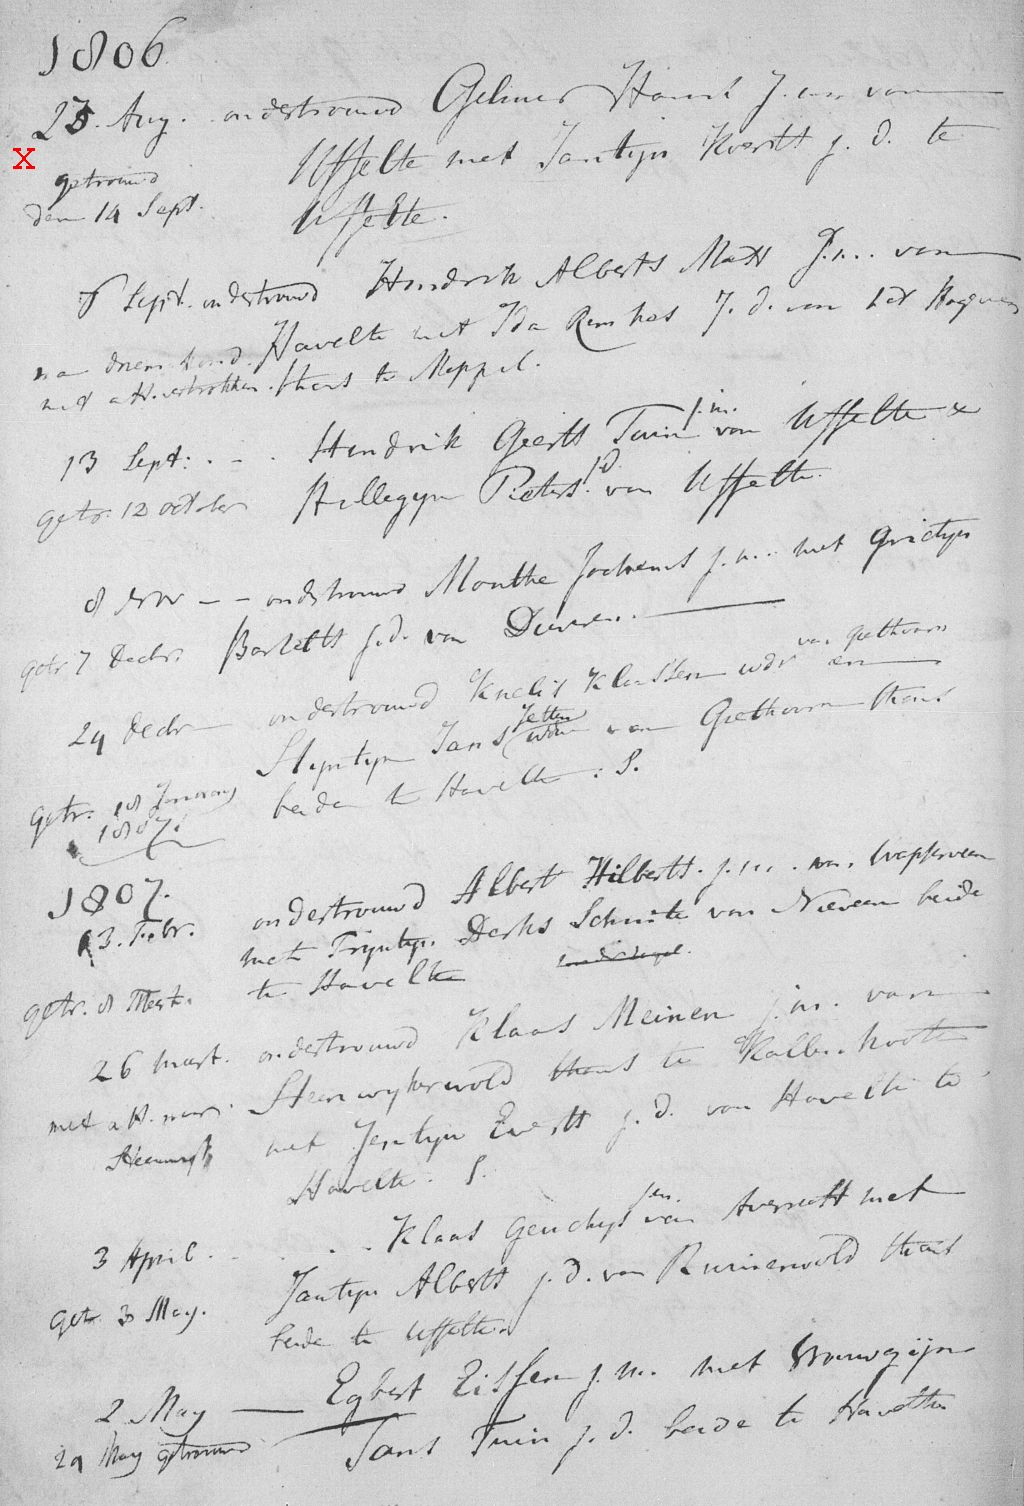 1806
23. Aug. ondertrouwd Gelmer Hendr j.m. van
X
getrouwd Uffelte met Jantyn Everts j. d. te
den 14 Sept. Uffelte.
6 Sept. ondertrouwd Hendrik Alberts Matt J.m. van
na drem. Havelte met Ida Remkes J. d. van het
met att. vertrokken thans te Meppel.
13 Sept: . - . Hendrik Geerts Tuin j.m. van Uffelte x
getr. 12 october Hillegyn Pieters j.d. van Uffelte.
8 Nov - - ondertrouwd Monthe Jochems j.m. met Grietyn
getr 7 Decbr. Bartelts j.d. van Diever.
24 Decbr ondertrouwd Knelis Klaassen wdr van giethoorn en
Styntyn Jans Jetten wdw van Giethoorn thans
getr. 18 January beide te Havelte : S.
1807.
1807.
13. Febr. ondertrouwd Albert Hilberts. j.m. van Wapserveen
met Tryntyn Derks Schuite van Nieveen beide
getr. 8 Mert. te Havelte
26 mart. ondertrouwd Klaas Meinen j.m. van
met att. naar Steenwykerwold thans te Kallenkoote
Steenwyk met Jentyn Everts j. d. van Havelte te
Havelte. S.
3 April . - . . . Klaas Geuchys j.m. van Averecht met
getr 3 May. Jantyn Alberts j. d. van Ruinerwold thans
beide te Uffelte.
2 May Egbert Eissen j. m. met Vrouwgijn
24 May getrouwd Jans Tuin j. d. beide te Havelte